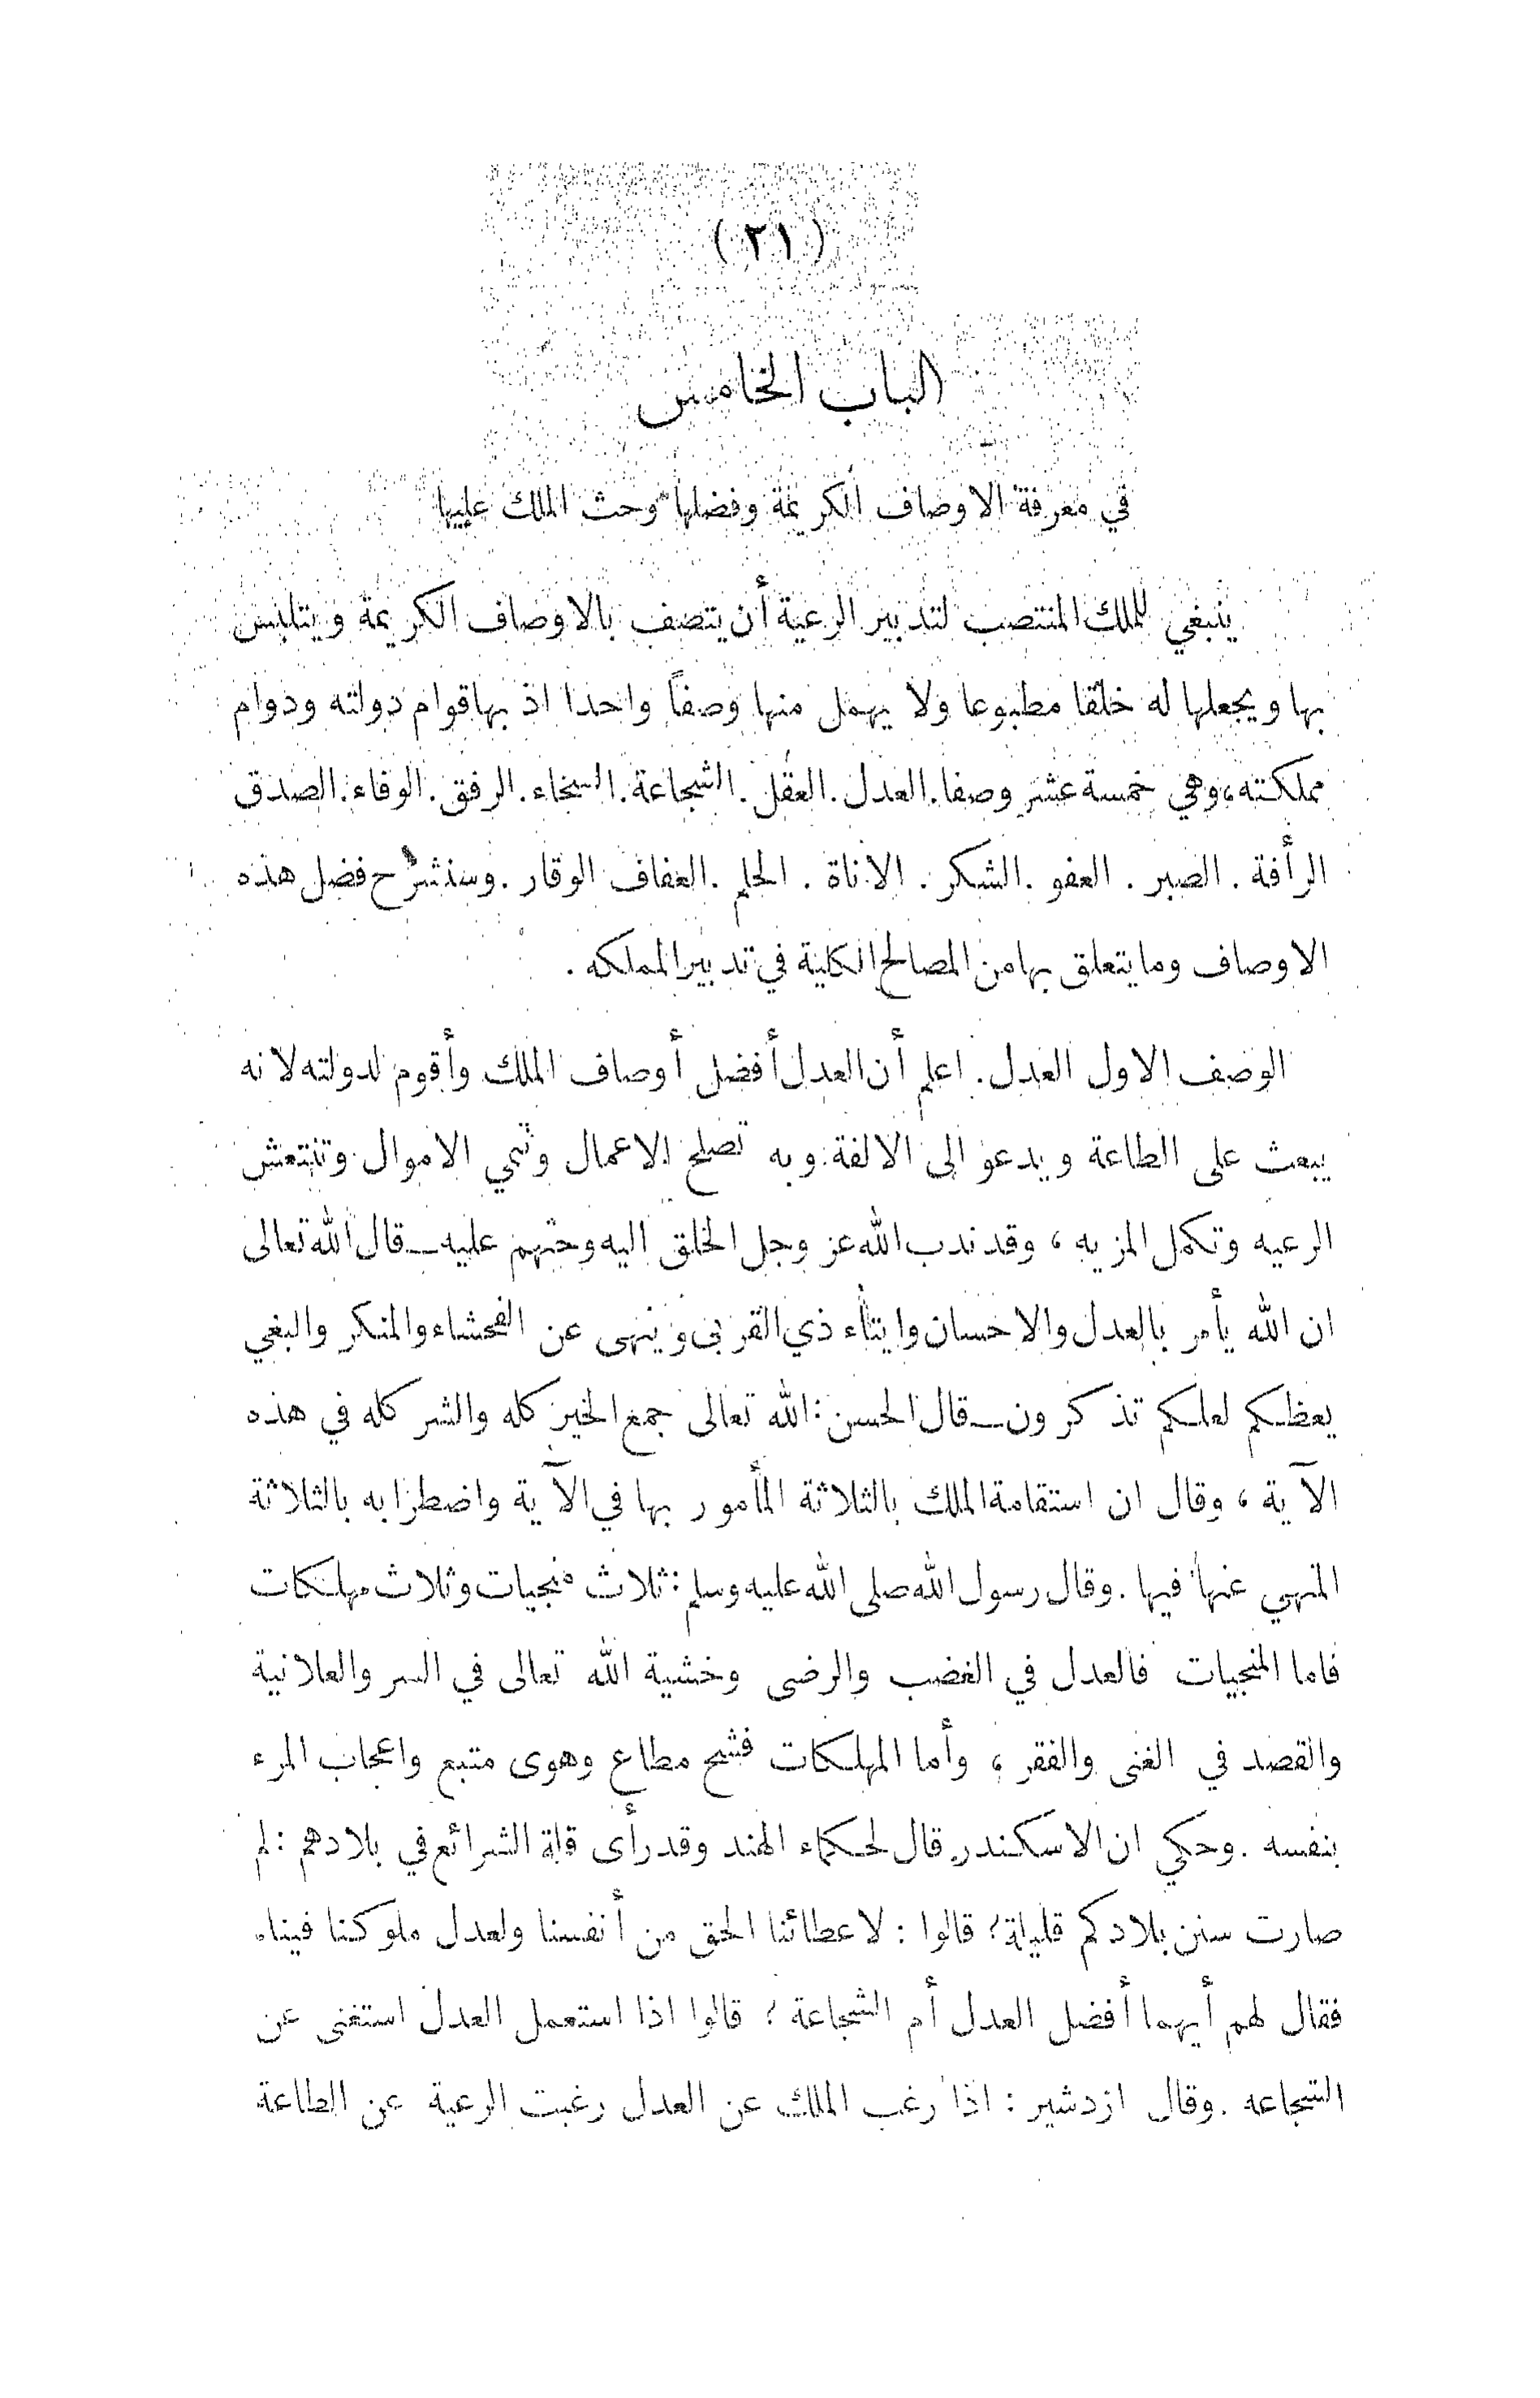 ( ٢١ )
الباب الخامس
في معرفة الاوصاف الكريمة وفضلها وحث الملك عليها
ينبغي للملك المنتصب لتدبير الرعية أن يتصف بالاوصاف الكريمة ويتلبس
بها ويجعلها له خلقا مطبوعا ولا يهمل منها وصفاً واحدا اذ بها قوام دولته ودوام
مملكته، وهي خمسة عشر وصفا. العدل. العقل. الشجاعة. السخاء. الرفق. الوفاء. الصدق
الرأفة. الصبر. العفو. الشكر. الاناة. الحلم. العفاف الوقار. وسنشرح فضل هذه
الاوصاف وما يتعلق بها من المصالح الكلية في تدبير المملكه.
الوصف الاول العدل. اعلم أن العدل أفضل أوصاف الملك وأقوم لدولته لانه
يبعث على الطاعة ويدعو الى الالفة وبه تصلح الاعمال وتنمي الاموال وتنتعش
الرعيه وتكمل المزيه، وقد ندب الله عز وجل الخلق اليه وحثهم عليه ــ قال الله تعالى
ان الله يأمر بالعدل والاحسان وايتاء ذي القربى وينهى عن الفحشاء والمنكر والبغي
يعظكم لعلكم تذكرون ــ قال الحسن: الله تعالى جمع الخير كله والشر كله في هذه
الآية، وقال ان استقامة الملك بالثلاثة المأمور بها في الآية واضطرابه بالثلاثة
المنهي عنها فيها. وقال رسول الله صلى الله عليه وسلم: ثلاث منجيات وثلاث مهلكات
فاما المنجيات فالعدل في الغضب والرضى وخشية الله تعالى في السر والعلانية
والقصد في الغنى والفقر، وأما المهلكات فشح مطاع وهوى متبع واعجاب المرء
بنفسه. وحكي ان الاسكندر قال لحكماء الهند وقد رأى قلة الشرائع في بلادهم: لم
صارت سنن بلادكم قليلة؟ قالوا: لاعطائنا الحق من أنفسنا ولعدل ملوكنا فينا.
فقال لهم أيهما أفضل العدل أم الشجاعة؟ قالوا اذا استعمل العدل استغنى عن
الشجاعه. وقال ازدشير: اذا رغب الملك عن العدل رغبت الرعية عن الطاعة